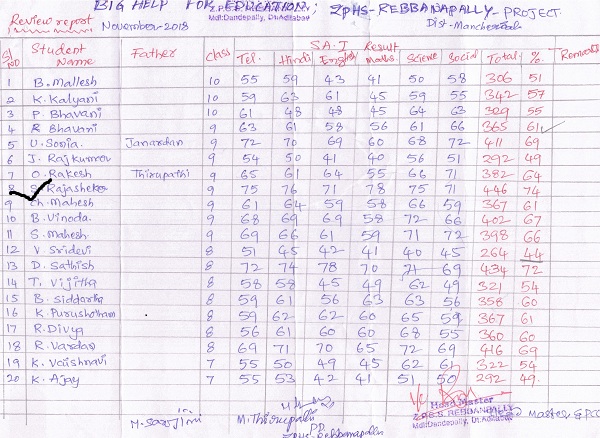 BIG HELP FOR EDUCATION; ZPHS-REBBANAPALLY-PROJECT.
Mdl:Dandepally, Dt:Adilabad
Review report November-2018 Dist-Mancherial
SA-I Result
Sl NO Student Name Father Class Tel. Hindi English Maths Science Social Total % Remarks
1 B. Mallesh 10 55 59 43 41 50 58 306 51
2 K. Kalyani 10 59 63 61 45 59 55 342 57
3 P. Bhavani 10 61 48 48 45 64 63 329 55
4 R Bhavani 9 63 61 58 56 61 66 365 61
5 U. Sonia Janardan 9 72 70 69 60 68 72 411 69
6 J. Rajkumar 9 54 50 41 40 56 51 292 49
7 O. Rakesh Thirupathi 9 65 61 64 55 66 71 382 64
8 S. Rajasheker 9 75 76 71 78 75 71 446 74
9 Ch. Mahesh 9 61 64 59 58 66 59 367 61
10 B. Vinoda 9 68 69 69 58 72 66 402 67
11 S. Mahesh 9 69 66 61 59 71 72 398 66
12 V. Sridevi 8 51 45 42 41 40 45 264 44
13 D. Sathish 8 72 74 78 70 71 69 434 72
14 T. Vijitha 8 58 58 45 49 62 49 321 54
15 B. Siddartha 8 59 61 56 63 63 56 358 60
16 K. Purushotham 8 59 62 62 60 65 59 367 61
17 R. Divya 8 56 61 60 60 68 55 360 60
18 R. Vardan 8 69 71 70 65 72 69 416 69
19 K. Vaishnavi 7 55 50 49 45 62 61 322 54
20 K. Ajay 7 55 53 42 41 51 50 292 49
M. Sarojini M. Thirupathi Head Master
PD Z.P.H.S. REBBANAPALLY Master &
ZPHS-Rebbanapally Mdl:Dandepally, Dt:Adilabad